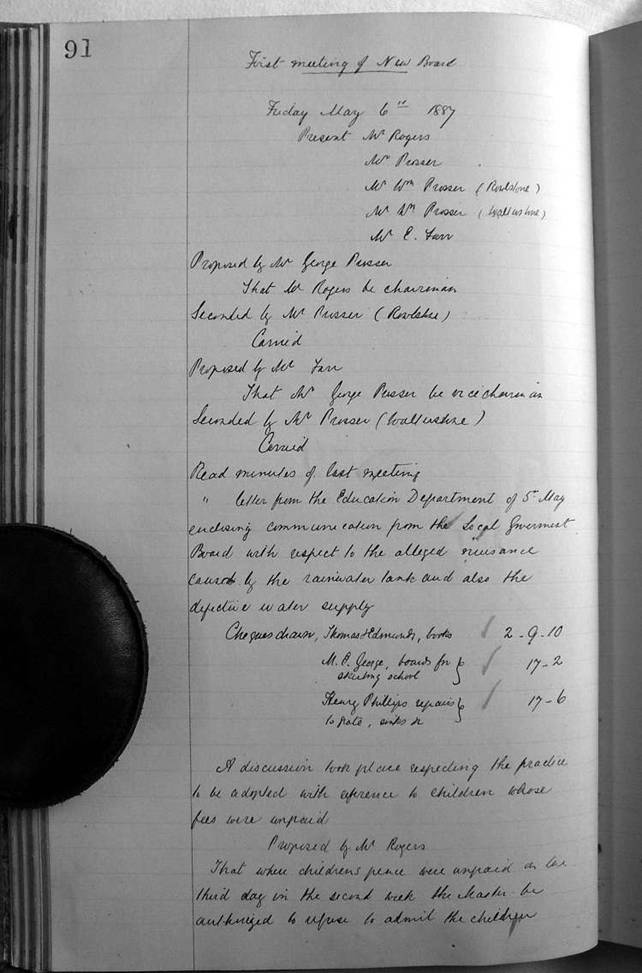 91
First meeting of New Board
Friday May 6th 1887
Present Mr Rogers
Mr Prosser
Mr Wm Prosser (Rowlstone)
Mr Wm Prosser (Walterstone)
Mr E. Farr
Proposed by Mr George Prosser
That Mr Rogers be chairman
Seconded by Mr Prosser (Rowlstone)
Carried
Proposed by Mr Farr
That Mr George Prosser be vice chairman
Seconded by Mr Prosser (Walterstone)
Carried
Read minutes of last meeting
" letter from the Education Department of 5 May
enclosing communication from the Local Government
Board with respect to the alleged nuisance
caused by the rainwater tank and also the
defective water supply
Cheques drawn, Thomas & Edmunds, books 2-9-10
M. E. George, boards for } 17-2
skirting school
Henry Phillips repairs } 17-6
to grate, sinks &c
A discussion took place respecting the practice
to be adopted with reference to children whose
fees were unpaid
Proposed by Mr Rogers
That where childrens pence were unpaid on the
third day in the second week the Master be
authorized to refuse to admit the children